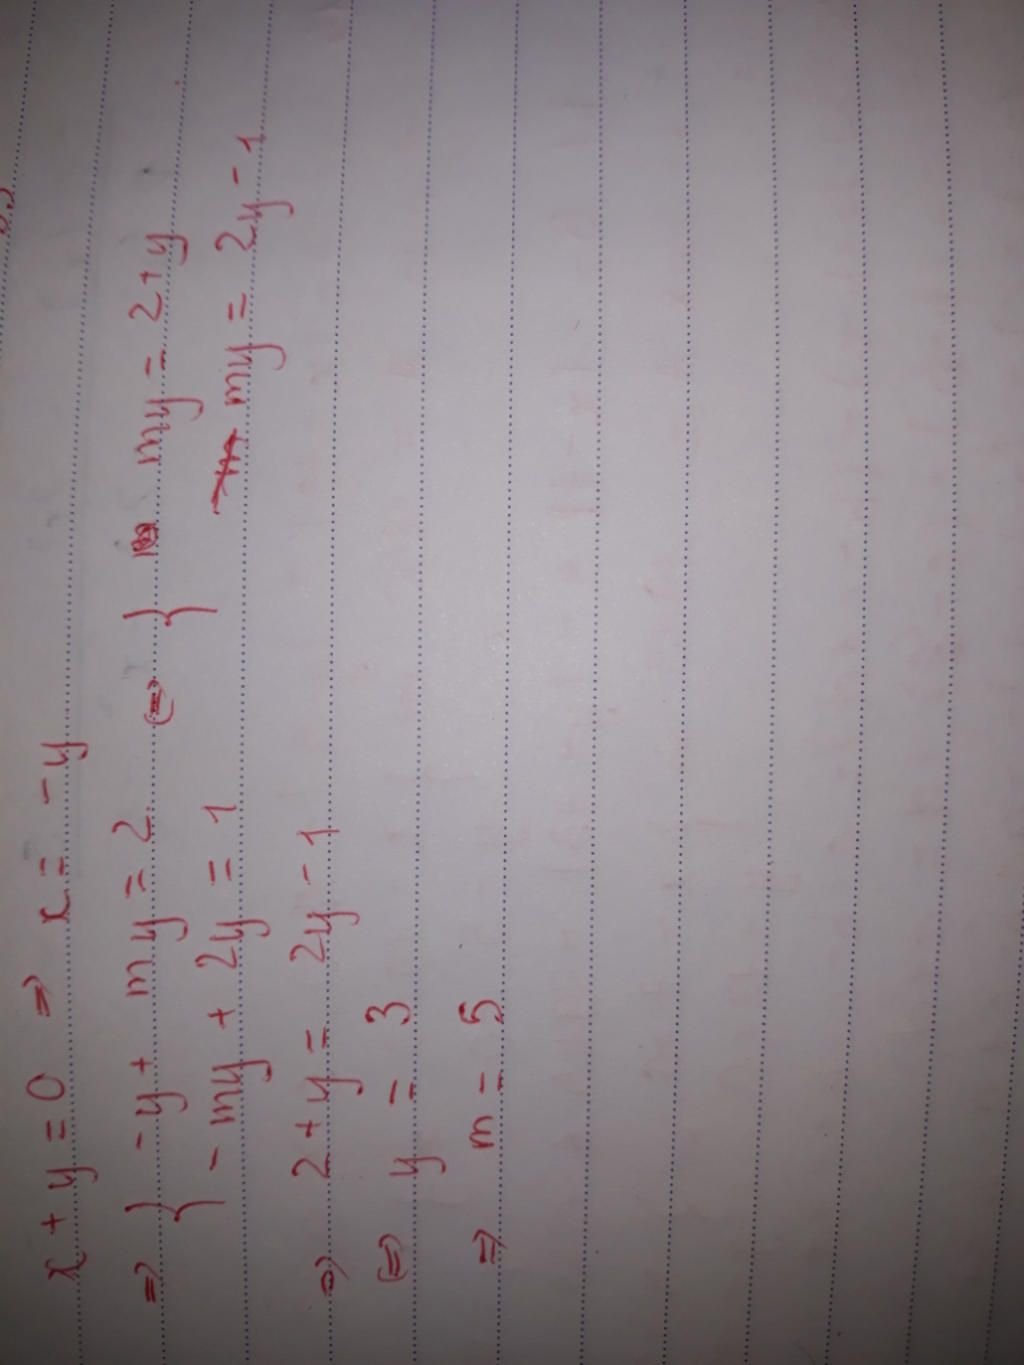 x + y = 0 ⇒ x = -y
⇒ { -y + my = 2 ⇔ { my = 2+y
-my + 2y = 1 my = 2y - 1
⇒ 2 + y = 2y - 1
⇔ y = 3
⇒ m = 5